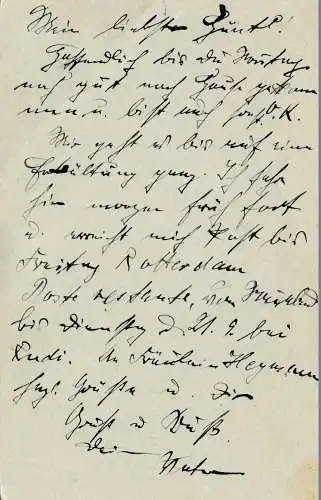 Mein liebster Gustl!
Hoffentlich bis du Montag
noch gut nach Hause gekom
men u. bist auch sonst O.K.
Mir geht es bis auf eine
Erkältung ganz. Ich fahr
hier morgen früh fort
u. erreicht mich Post bis
Freitag Rotterdam
Poste restante, von
bis Dienstag d. 21. 9. bei
Rudi. An Fräulein Heymann
Grüße u. Dir
Gruß u. Kuß.
Dein
Vater